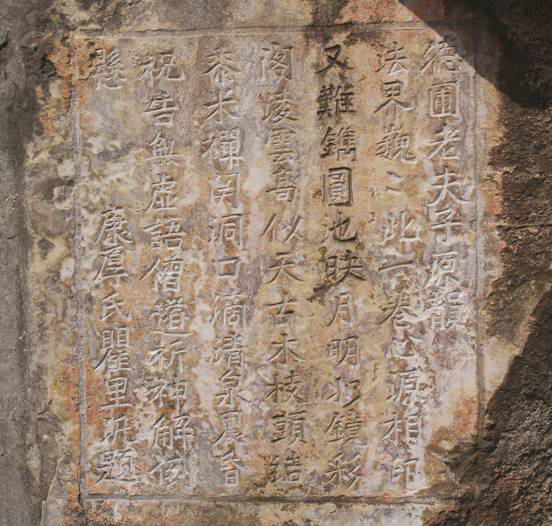 德圃老夫子原韻
法界巍〻此一卷心源相印
又難鐫圓池映月明扵鏡彩
閣崚雲高似天古木枝頭結
黍米禪関洞口滴清泉裊香
祝告無虛語僧道祈神解倒
懸 康厚氏瞿里題